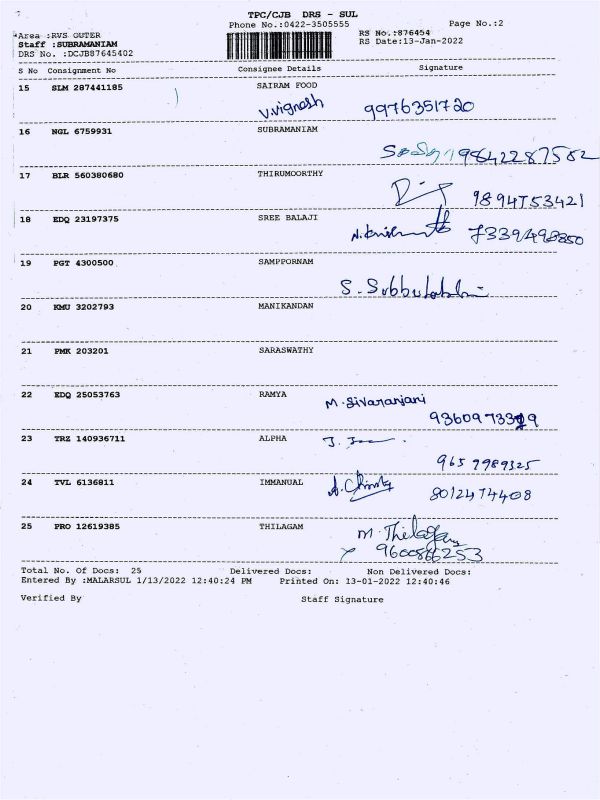 TPC/CJB DRS - SUL
Phone No.:0422-3505555 Page No.:2
Area :RVS OUTER RS No.:876454
Staff :SUBRAMANIAM RS Date:13-Jan-2022
DRS No. :DCJB87645402
S No Consignment No Consignee Details Signature
15 SLM 287441185 SAIRAM FOOD
V.vignesh 9976351720
16 NGL 6759931 SUBRAMANIAM
9842287582
17 BLR 560380680 THIRUMOORTHY
9894753421
18 EDQ 23197375 SREE BALAJI
7339498850
19 PGT 4300500 SAMPPORNAM
S. Subbulakshmi
20 KMU 3202793 MANIKANDAN
21 PMK 203201 SARASWATHY
22 EDQ 25053763 RAMYA M. Sivaranjani
23 TRZ 140936711 ALPHA
9659989325
24 TVL 6136811 IMMANUAL
8012474408
25 PRO 12619385 THILAGAM M. Thilagam
Total No. Of Docs: 25 Delivered Docs: Non Delivered Docs:
Entered By :MALARSUL 1/13/2022 12:40:24 PM Printed On: 13-01-2022 12:40:46
Verified By Staff Signature